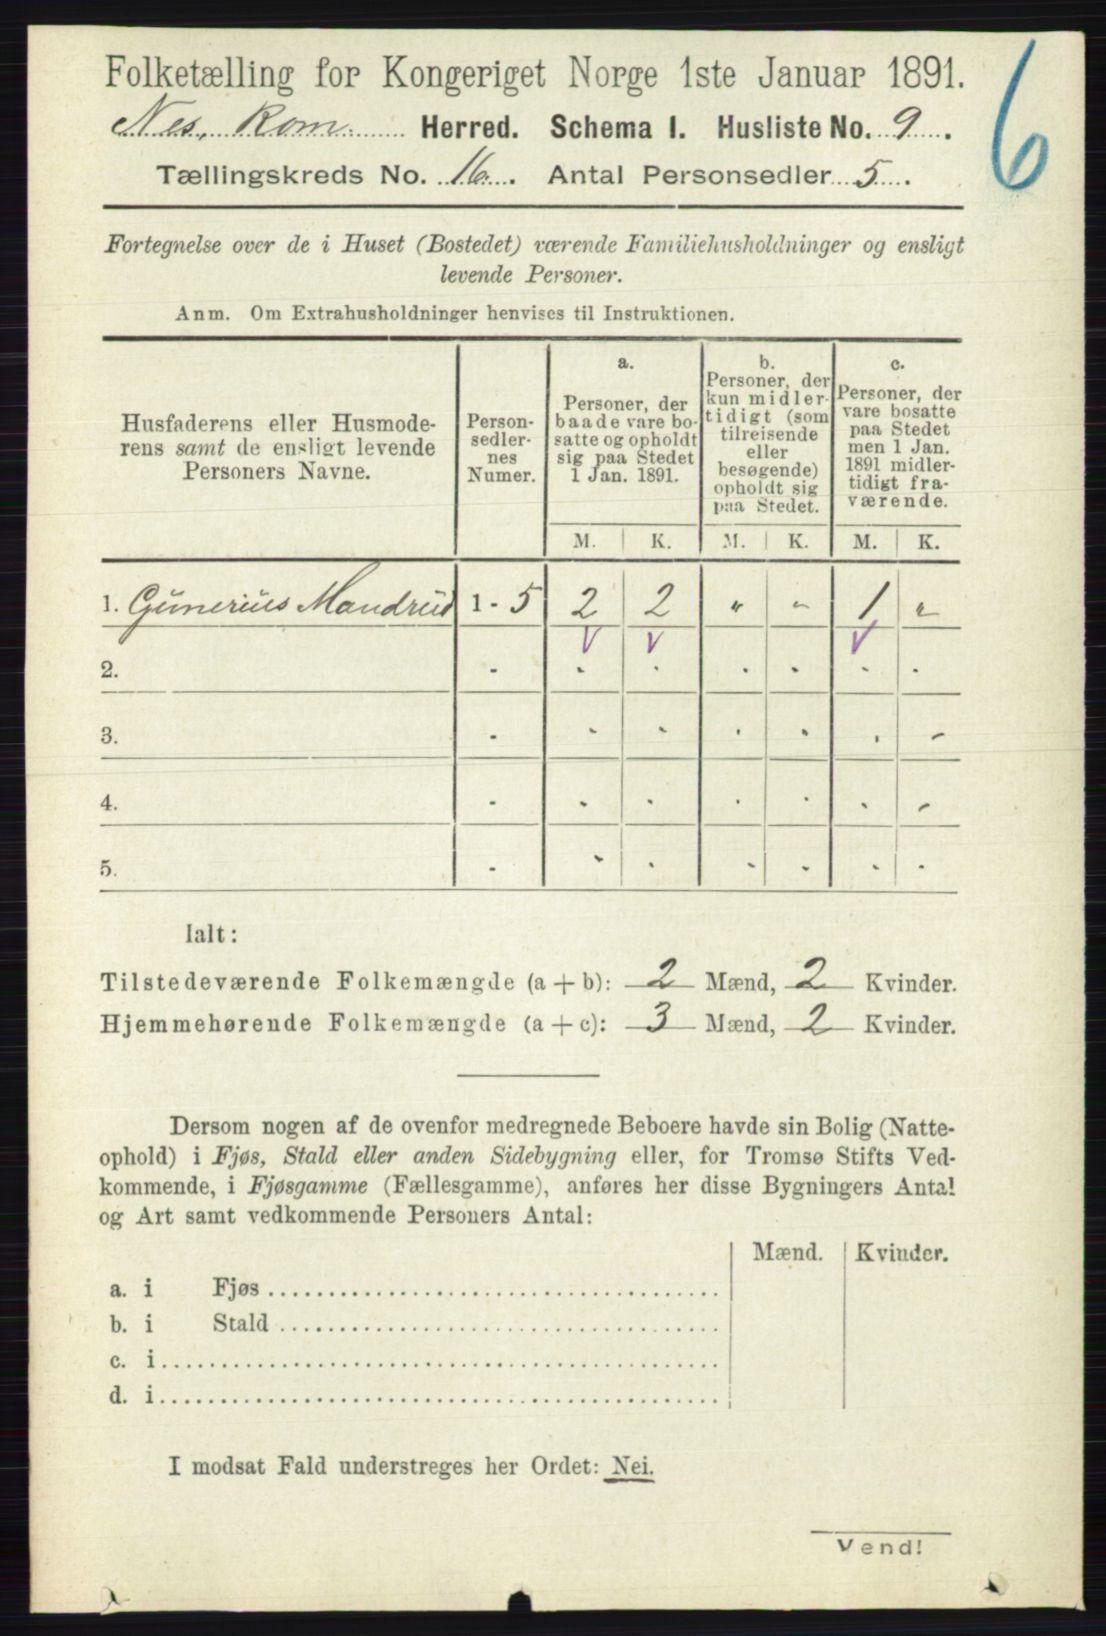 Folketælling for Kongeriget Norge 1ste Januar 1891.
6
Nes, Rom. Herred. Schema I. Husliste No. 9.
Tællingskreds No. 16. Antal Personsedler 5.
Fortegnelse over de i Huset (Bostedet) værende Familiehusholdninger og ensligt
levende Personer.
Anm. Om Extrahusholdninger henvises til Instruktionen.
Husfaderens eller Husmode-
rens samt de ensligt levende
Personers Navne.
Person-
sedler-
nes
Numer.
a.
Personer, der
baade vare bo-
satte og opholdt
sig paa Stedet
1 Jan. 1891.
b.
Personer, der
kun midler-
tidigt (som
tilreisende
eller
besøgende)
opholdt sig
paa Stedet.
c.
Personer, der
vare bosatte
paa Stedet
men 1 Jan.
1891 midler-
tidigt fra-
værende.
M. K. M. K. M. K.
1. Gunerius Mandrud 1 - 5 2 2 " " 1 "
V V V
2. - - - - - - -
3. - - - - - - -
4. - - - - - - -
5. - - - - - - -
Ialt:
Tilstedeværende Folkemængde (a + b): 2 Mænd, 2 Kvinder.
Hjemmehørende Folkemængde (a + c): 3 Mænd, 2 Kvinder.
Dersom nogen af de ovenfor medregnede Beboere havde sin Bolig (Natte-
ophold) i Fjøs, Stald eller anden Sidebygning eller, for Tromsø Stifts Ved-
kommende, i Fjøsgamme (Fællesgamme), anføres her disse Bygningers Antal
og Art samt vedkommende Personers Antal:
Mænd. Kvinder.
a. i Fjøs
b. i Stald
c. i
d. i
I modsat Fald understreges her Ordet: Nei.
Vend!